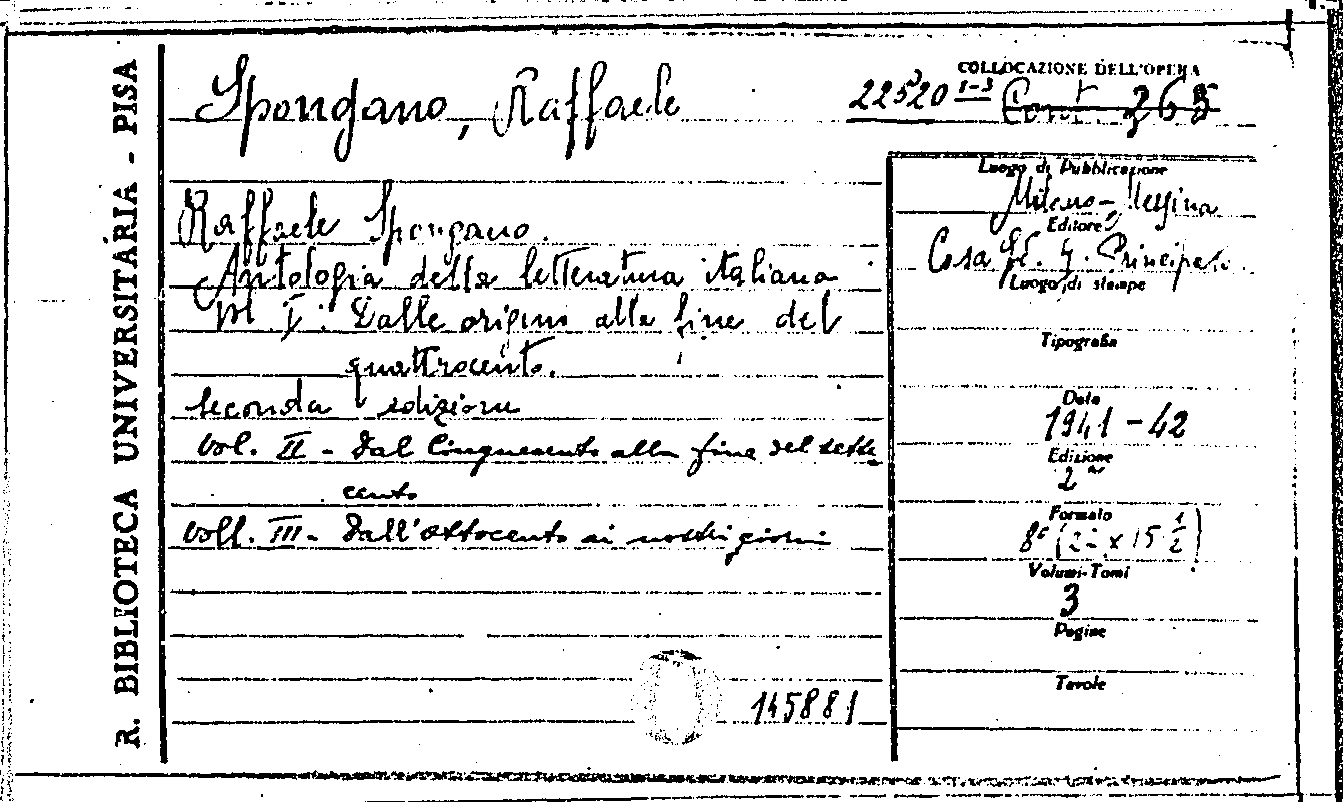 R. BIBLIOTECA UNIVERSITARIA - PISA
Spongano, Raffaele
COLLOCAZIONE DELL'OPERA
22520 1-3 263
Raffaele Spongano.
Antologia della letteratura italiana
Vol I: Dalle origini alla fine del
quattrocento.
Seconda edizione
Vol. II - Dal Cinquecento alla fine del sette
cento
Voll. III - Dall'ottocento ai nostri giorni
145881
Luogo di Pubblicazione
Milano - Messina
Editore
Casa Ed. G. Principato
Luogo di stampa
Tipografia
Data
1941-42
Edizione
2ª
Formato
8° x 15 1/2
Volumi-Tomi
3
Pagine
Tavole